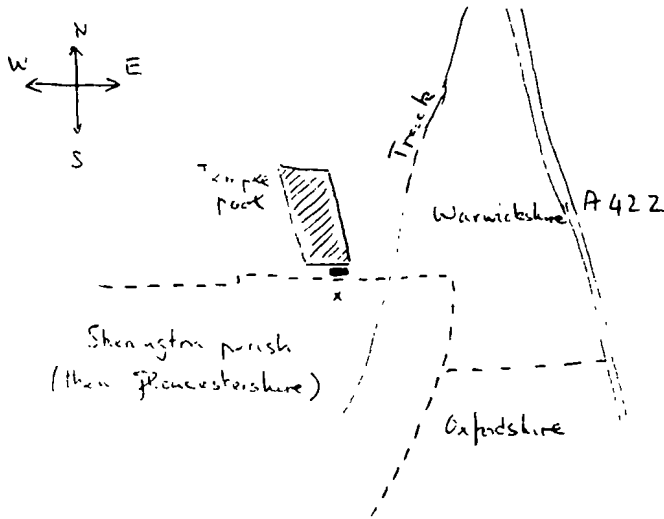 N
W E
S
Track
Temple
pool
Warwickshire A422
x
Shenington parish
(then Gloucestershire)
Oxfordshire